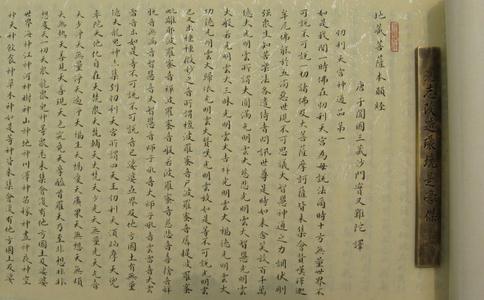 地藏菩薩本願經
唐于闐國三藏沙門實叉難陀譯
忉利天宮神通品第一
如是我聞一時佛在忉利天宮為母說法爾時十方無量世界不
可說不可說一切諸佛及大菩薩摩訶薩皆來集會讚歎釋迦
牟尼佛能於五濁惡世現不可思議大智慧神通之力調伏剛
強眾生知苦樂法各遣侍者問訊世尊是時如來含笑放百千萬
億大光明雲所謂大圓滿光明雲大慈悲光明雲大智慧光明雲
大般若光明雲大三昧光明雲大吉祥光明雲大福德光明雲大
功德光明雲大歸依光明雲大讚歎光明雲放如是等不可說光明雲
已又出種種微妙之音所謂檀波羅蜜音尸波羅蜜音羼提波羅蜜音
毗離耶波羅蜜音禪波羅蜜音般若波羅蜜音慈悲音喜捨音解
脫音無漏音智慧音大智慧音師子吼音大師子吼音雲雷音大雲
雷音出如是等不可說不可說音已娑婆世界及他方國土有無量
億天龍鬼神亦集到忉利天宮所謂四天王天忉利天須燄摩天兜
率陀天化樂天他化自在天梵眾天梵輔天大梵天少光天無量光天光音
天少淨天無量淨天遍淨天福生天福愛天廣果天無想天無煩
天無熱天善見天善現天色究竟天摩醯首羅天乃至非想非非
想處天一切天眾龍眾鬼神等眾悉來集會復有他方國土及娑婆
世界海神江神河神樹神山神地神川澤神苗稼神晝神夜神空
神天神飲食神草木神如是等神皆來集會復有他方國土及娑婆